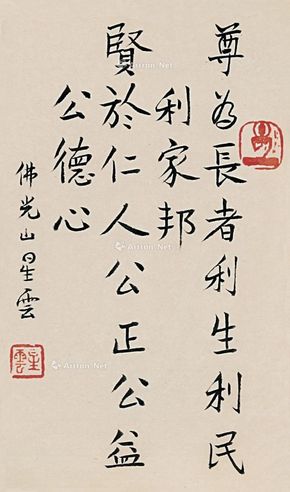 尊為長者利生利民
利家邦
賢於仁人公正公益
公德心
佛光山星雲
星雲
Artron.Net